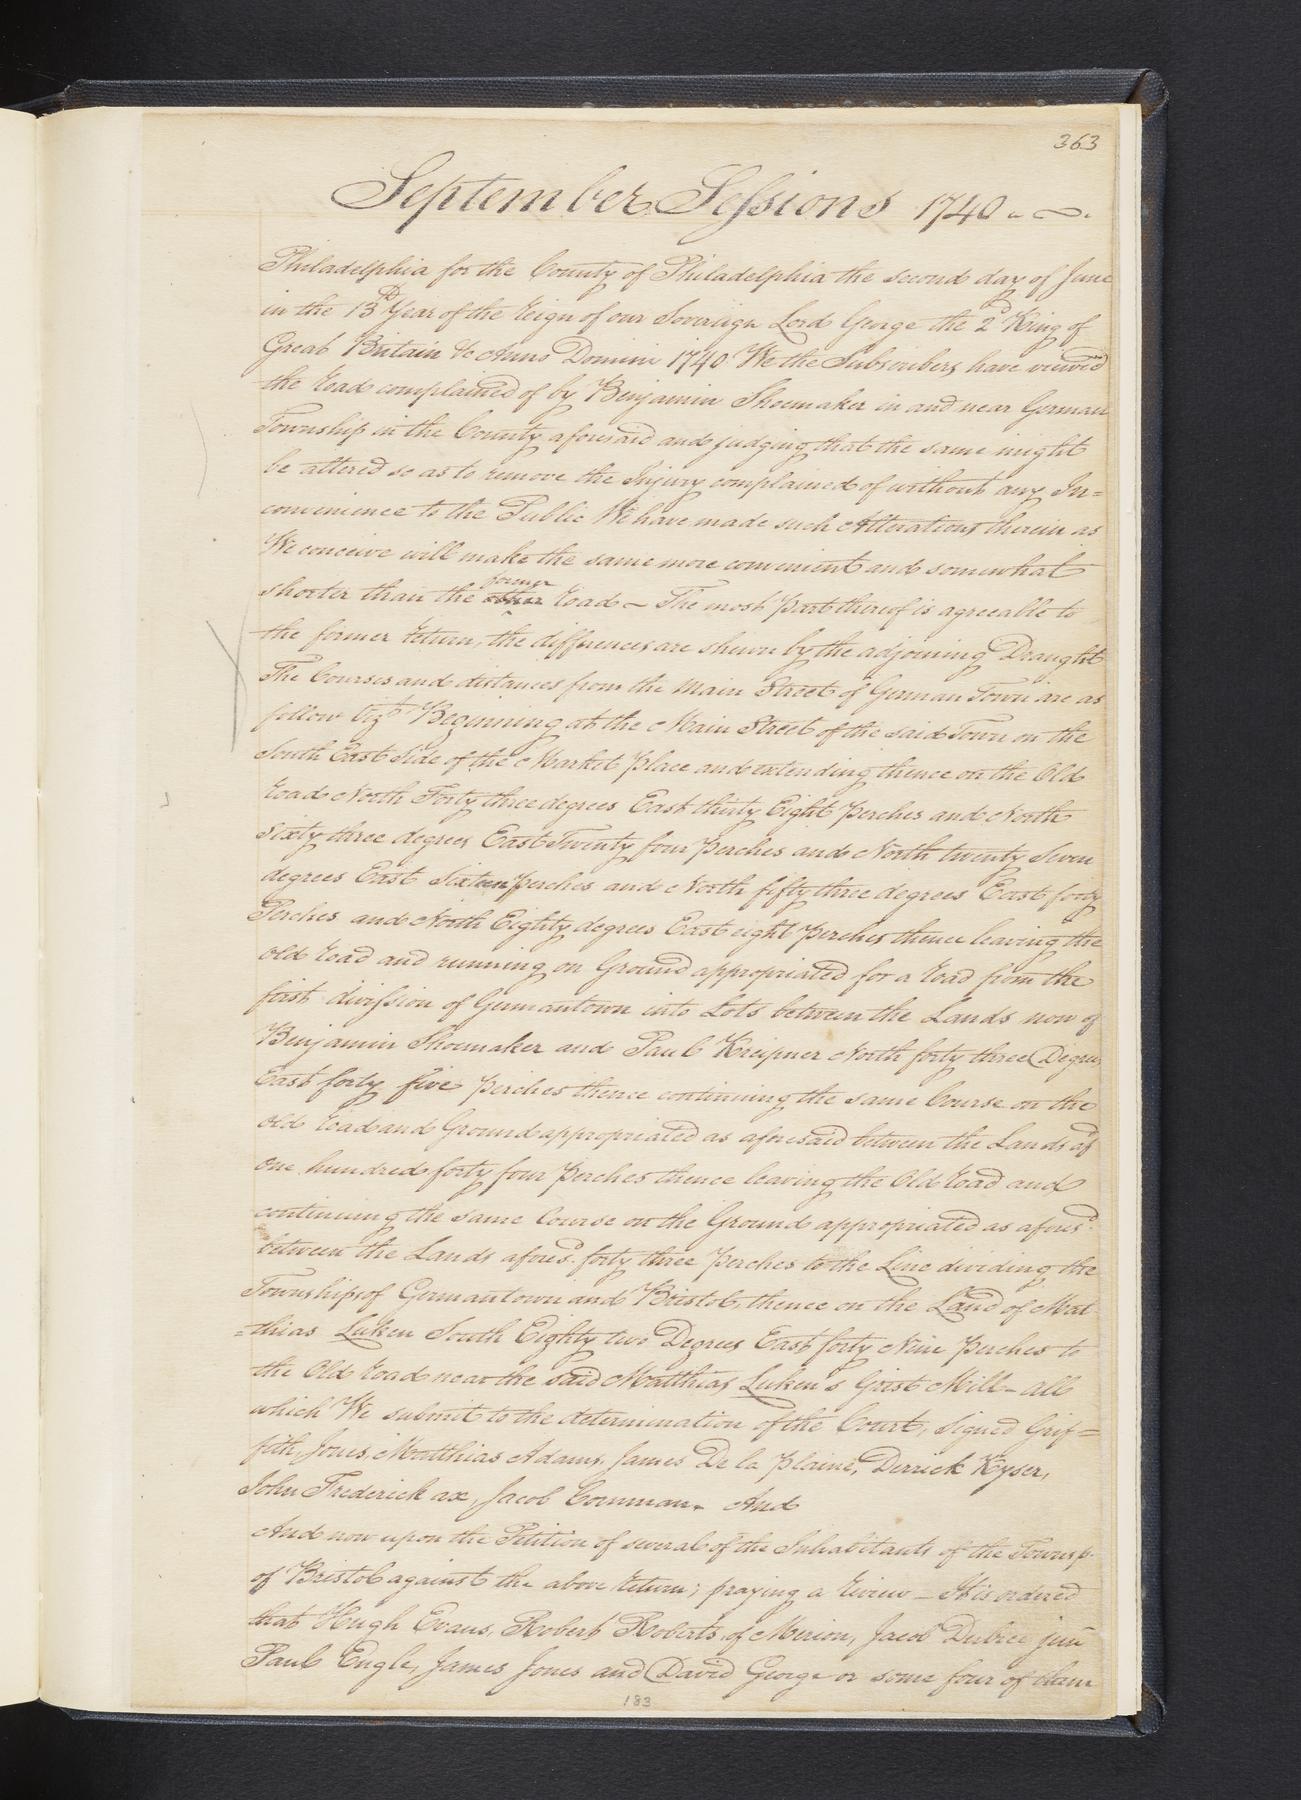 363
September Sessions 1740
Philadelphia for the County of Philadelphia the second day of June
in the 13th Year of the Reign of our Soveraign Lord George the 2d King of
Great Britain &c Anno Domini 1740 We the Subscribers have viewed
the Road complained of by Benjamin Shoemaker in and near German
Township in the County aforesaid and judging that the same might
be altered so as to remove the Injury complained of without any In=
convenience to the Public We have made such Alterations therein as
We conceive will make the same more convenient and somewhat
shorter than the other former Road – The most part thereof is agreeable to
the former Return, the differences are shewn by the adjoining Draught
The Courses and distances from the Main Street of German Town are as
follow Vizt Beginning at the Main Street of the said Town on the
South East Side of the Market place and extending thence on the Old
Road North Forty three degrees East thirty Eight perches and North
Sixty three degrees East Twenty four perches and North twenty Seven
degrees East Sixteen perches and North fifty three degrees East forty
Perches and North Eighty degrees East eight perches thence leaving the
old Road and running on Ground appropriated for a Road from the
first division of Germantown into Lots between the Lands now of
Benjamin Shoemaker and Paul Kreipner North forty three Degrees
East forty five perches thence continuing the same Course on the
old Road and Ground appropriated as aforesaid between the Lands afd
one hundred forty four perches thence leaving the Old Road and
continuing the same Course on the Ground appropriated as aforesd.
between the Lands aforesd. forty three perches to the Line dividing the
Townships of Germantown and Bristol, thence on the Land of Mat
=thias Luken South Eighty two Degrees East forty Nine perches to
the Old Road near the said Matthias Luken's Grist Mill – all
which We submit to the determination of the Court, Signed Grif=
fith Jones, Matthias Adams, James De la plaine, Derrick Kyser,
John Frederick ax, Jacob Coenman. And
And now upon the Petition of several of the Inhabitants of the Townsp.
of Bristol against the above Return; praying a Review – It is ordered
that Hugh Evans, Robert Roberts of Merion, Jacob Dubree junr
Paul Engle, James Jones and David George or some four of them
183